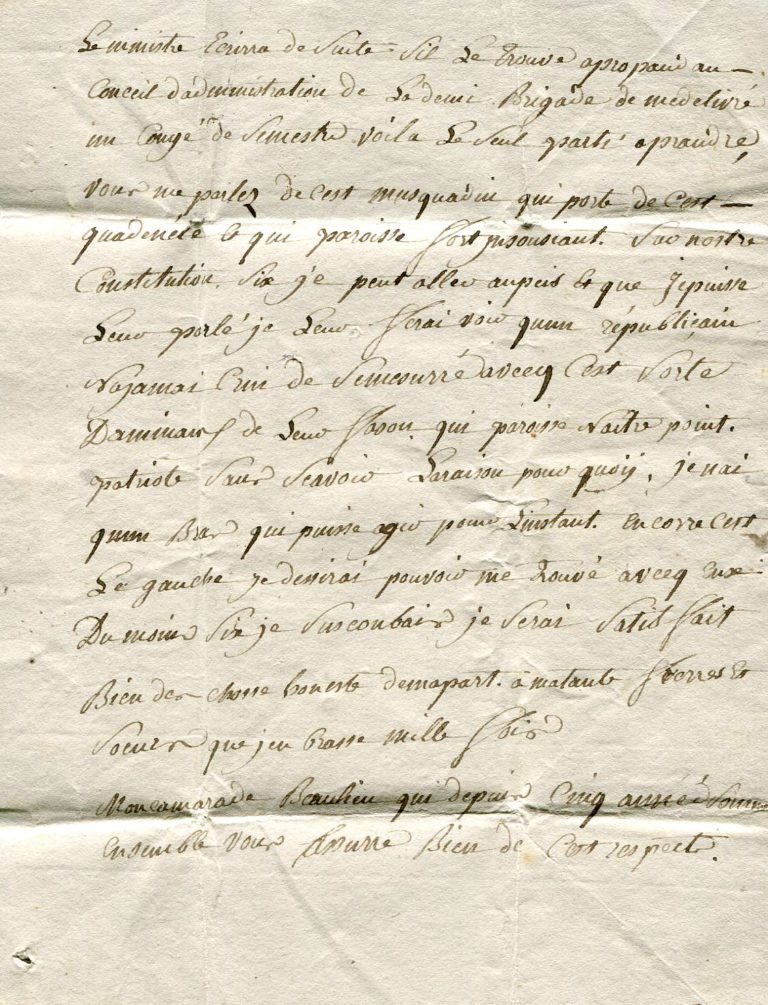 Le ministre Ecrira de Suite Sil Le trouve apropau au —
Conceil d'administration de La demi Brigade de me delivré
un Congé de Semestre voila Le Seul parti aprandre,
vous me parlez de cest musquadin qui porte de Cest —
quadenéte Et qui paroisse fort insousiant. Sur nostre
Constitution. Six je peut aller aupeis Et que Jepuisse
Leur parlé je Leur ferai voir quun républicain
Najamai Crin de Semesurré avecq Cest Sorte
Daminaux de Leur fason qui paroisse Naitre point.
patriote Sans Scavoir Laraison pour quoÿ, je nai
quun Bras qui puisse agir pour Linstant. Encorre Cest
Le gauche je dessirai pouvoir me trouvé avecq Eux
Du moins Six je Suscoubais je Serai Satisfait
Bien des chosse honeste demapart. à matante frerres Et
Soeurs que jen brasse mille fois
Moncamarade Beaulieu qui depuis Cinq année Somme
Ensemble vous assurre Bien de Cest respects.